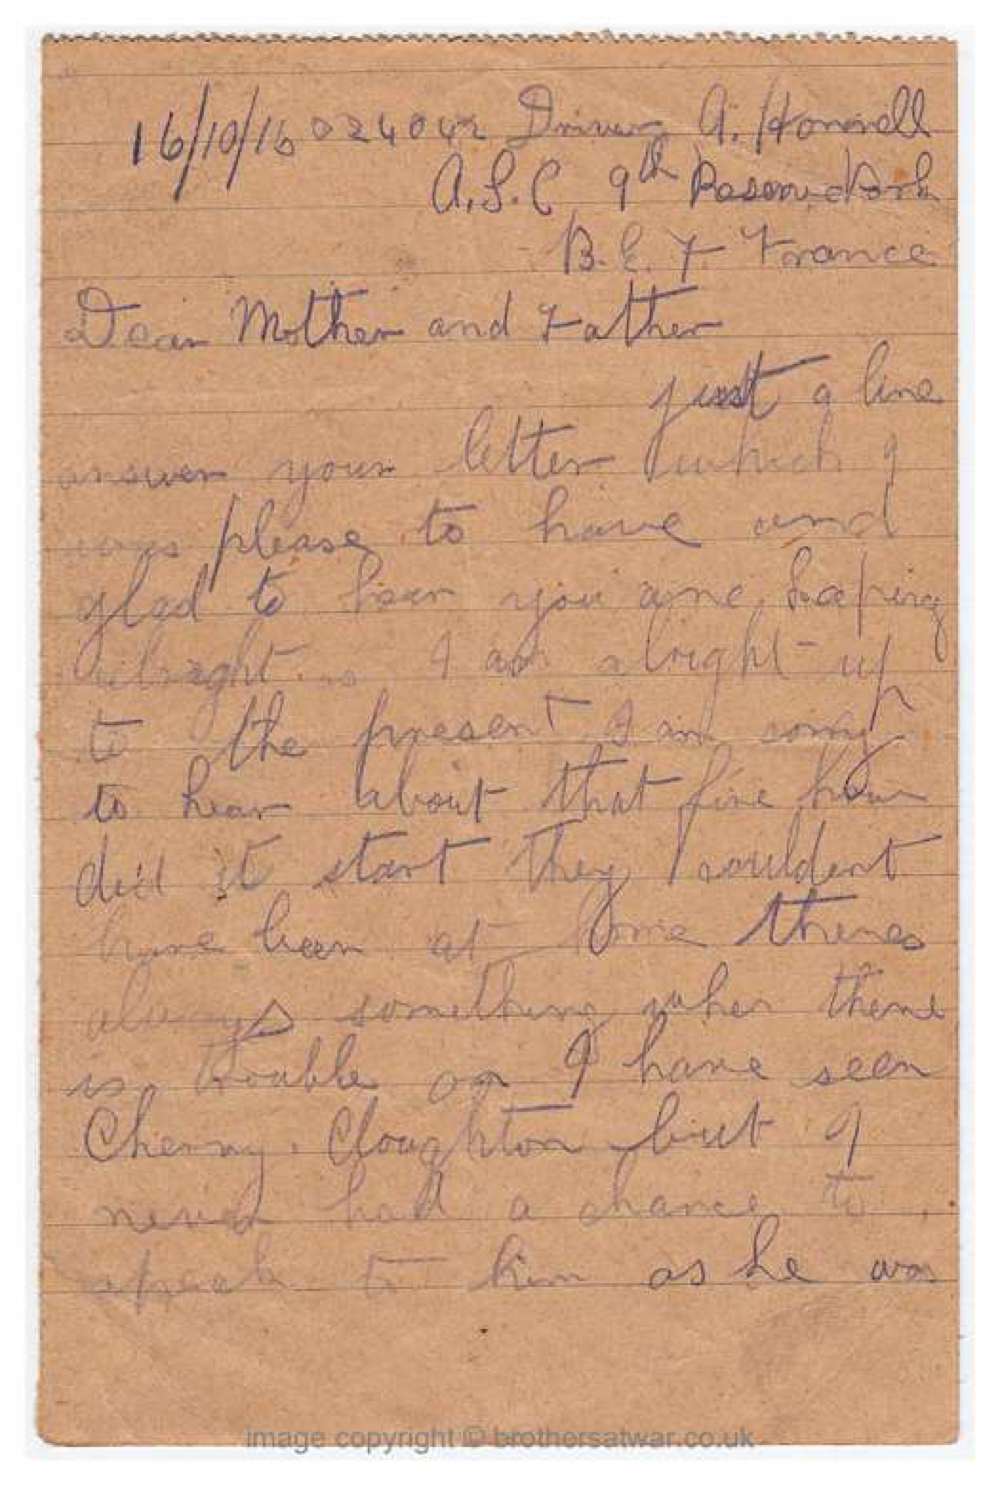 16/10/16 024042 Driver A. Horrell
A.S.C 9th Reserve Park
B.E.F France
Dear Mother and Father
just a line
answer your letter which I
was please to have and
glad to hear you are keeping
alright I am alright up
to the present I am sorry
to hear about that fire how
did it start they couldent
have been at home theres
always something when there
is trouble on I have seen
Cherry. Cloughton but I
never had a chance to
speak to him as he was
image copyright © brothersatwar.co.uk